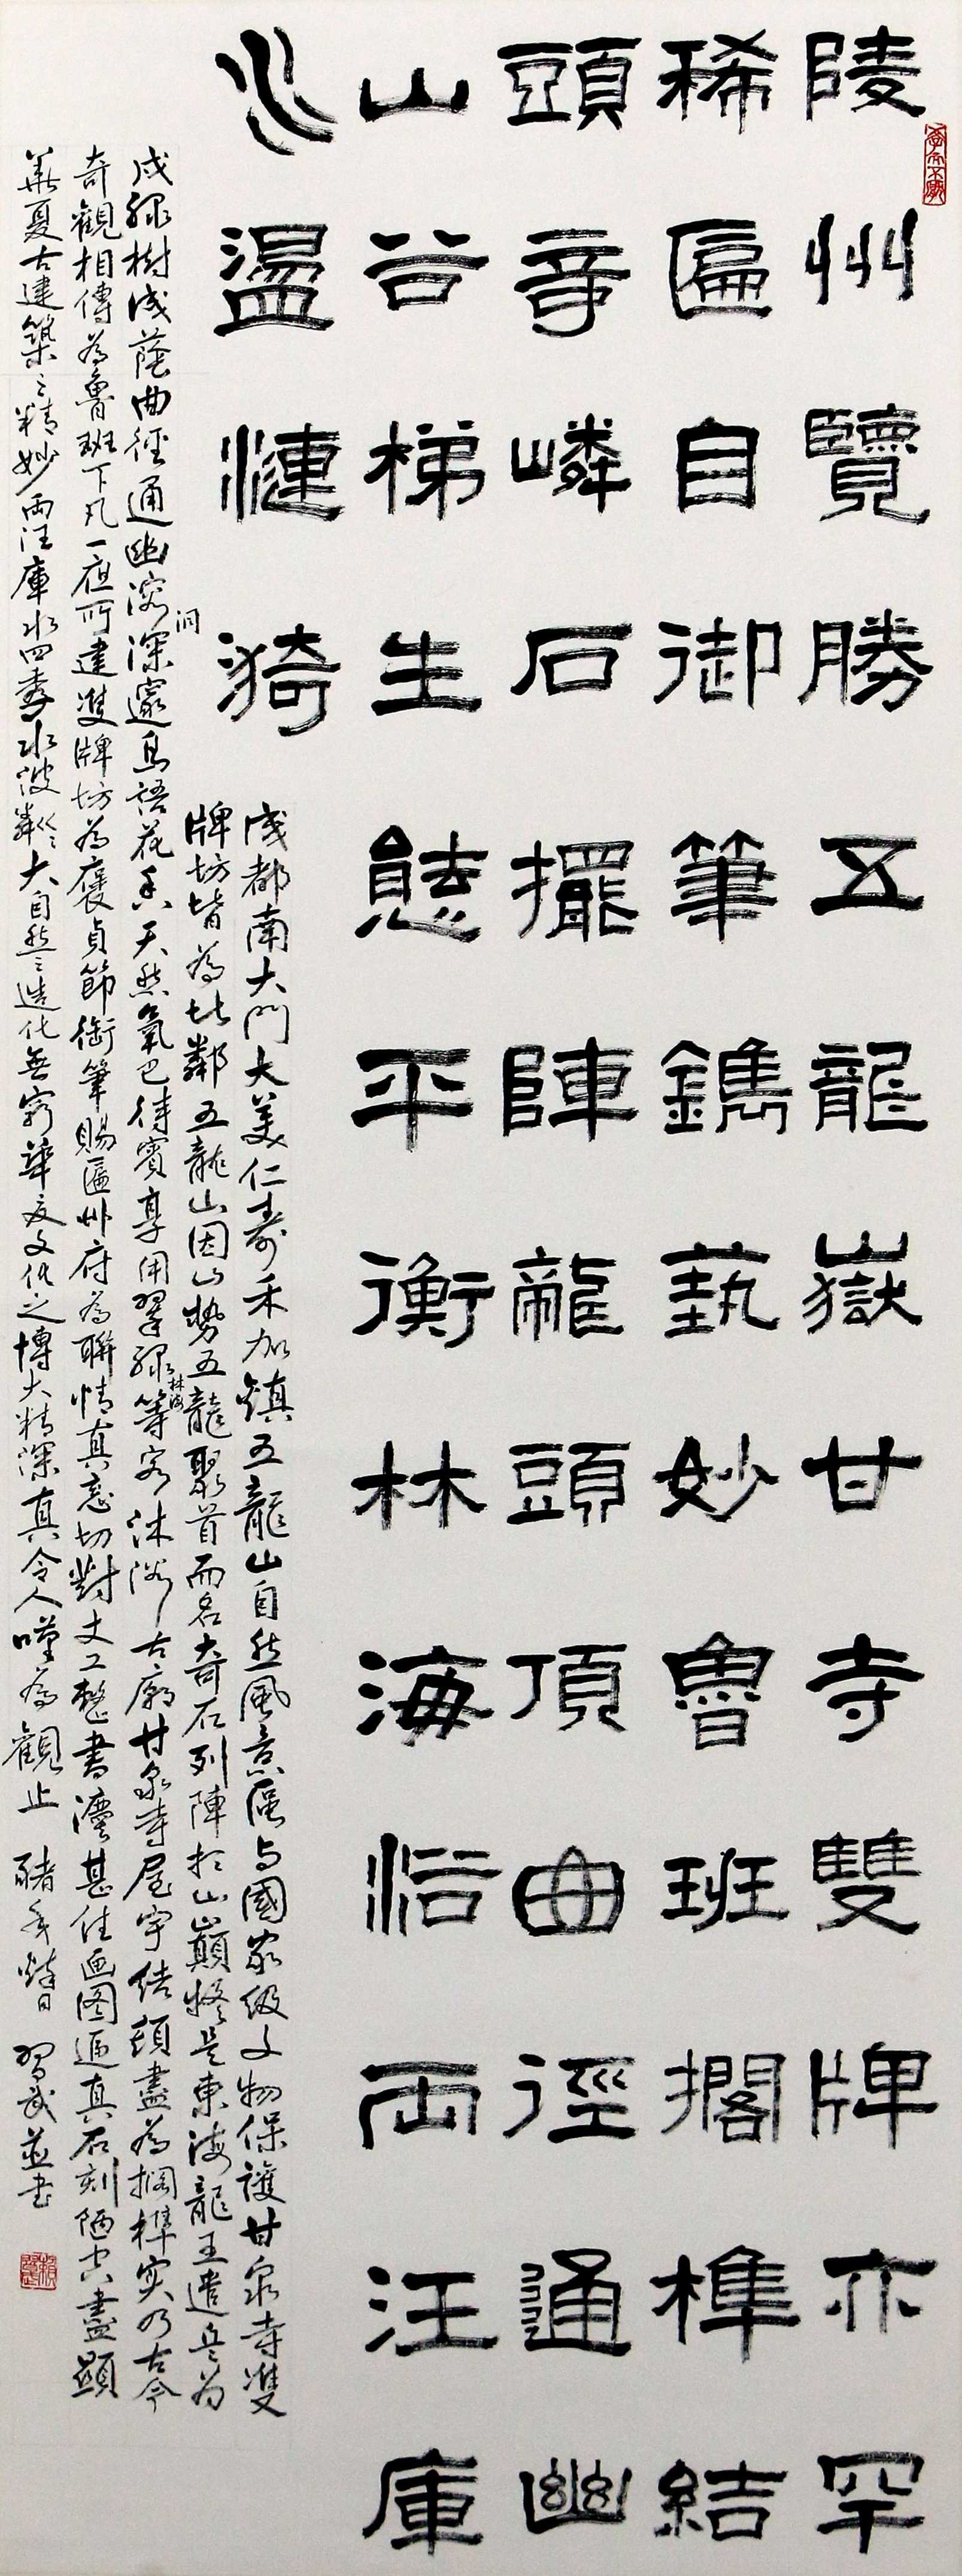 陵州覽勝五龍嶽甘寺雙牌亦罕
稀匾自御筆鐫藝妙魯班擱榫結
頭奇嶙石擺陣龍頭頂曲徑通幽
山谷梯生態平衡林海浴両汪庫
水盪漣漪
成都南大門大美仁壽禾加鎮五龍山自然風景區与國家級文物保護甘泉寺雙
牌坊皆為比鄰五龍山因山勢五龍聚首而名大奇石列陣於山巔恠是東海龍王遣兵为
戍綠樹成蔭曲徑通幽溶洞深邃鳥語花香天然氧巴待賓享用翠綠林海等客沐浴古廟甘泉寺屋宇结頭盡為擱榫实乃古今
奇觀相傳為魯班下凡一夜所建雙牌坊為褒貞節御筆賜匾州府為聯情真意切對丈工整書灋甚佳画图逼真石刻陋空盡顯
華夏古建築之精妙両汪庫水四季水波粼粼大自然之造化無窮華夏文化之博大精深真令人嘆為觀止 豬年 日 習武並书